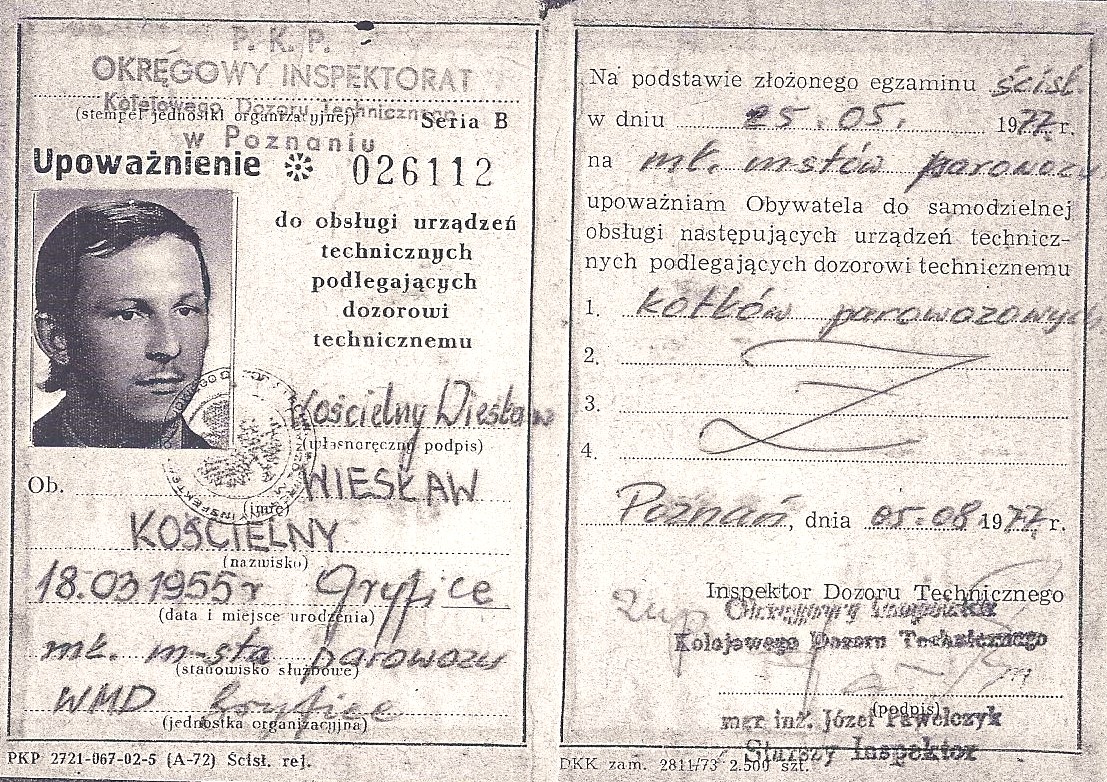 P. K. P.
OKRĘGOWY INSPEKTORAT
Kolejowego Dozoru Technicznego
(stempel jednostki organizacyjnej)
Seria B
w Poznaniu
Upoważnienie 026112
do obsługi urządzeń
technicznych
podlegających
dozorowi
technicznemu
Kościelny Wiesław
(własnoręczny podpis)
Ob. WIESŁAW
(imię)
KOŚCIELNY
(nazwisko)
18.03 1955 r Gryfice
(data i miejsce urodzenia)
mł. m-sta parowozu
(stanowisko służbowe)
WMD Gryfice
(jednostka organizacyjna)
PKP 2721-067-02-5 (A-72) Ścisł. rej.
Na podstawie złożonego egzaminu ścisł.
w dniu 25.05. 1977 r.
na mł. m-stów parowozu
upoważniam Obywatela do samodzielnej
obsługi następujących urządzeń technicz-
nych podlegających dozorowi technicznemu
1. kotłów parowozowych
2.
3.
4.
Poznań, dnia 05.08 1977 r.
Inspektor Dozoru Technicznego
zup.
Kolejowego Dozoru Technicznego
(podpis)
mgr inż. Józef Pawelczyk
Starszy Inspektor
DKK zam. 2811/73 2.500 szt.